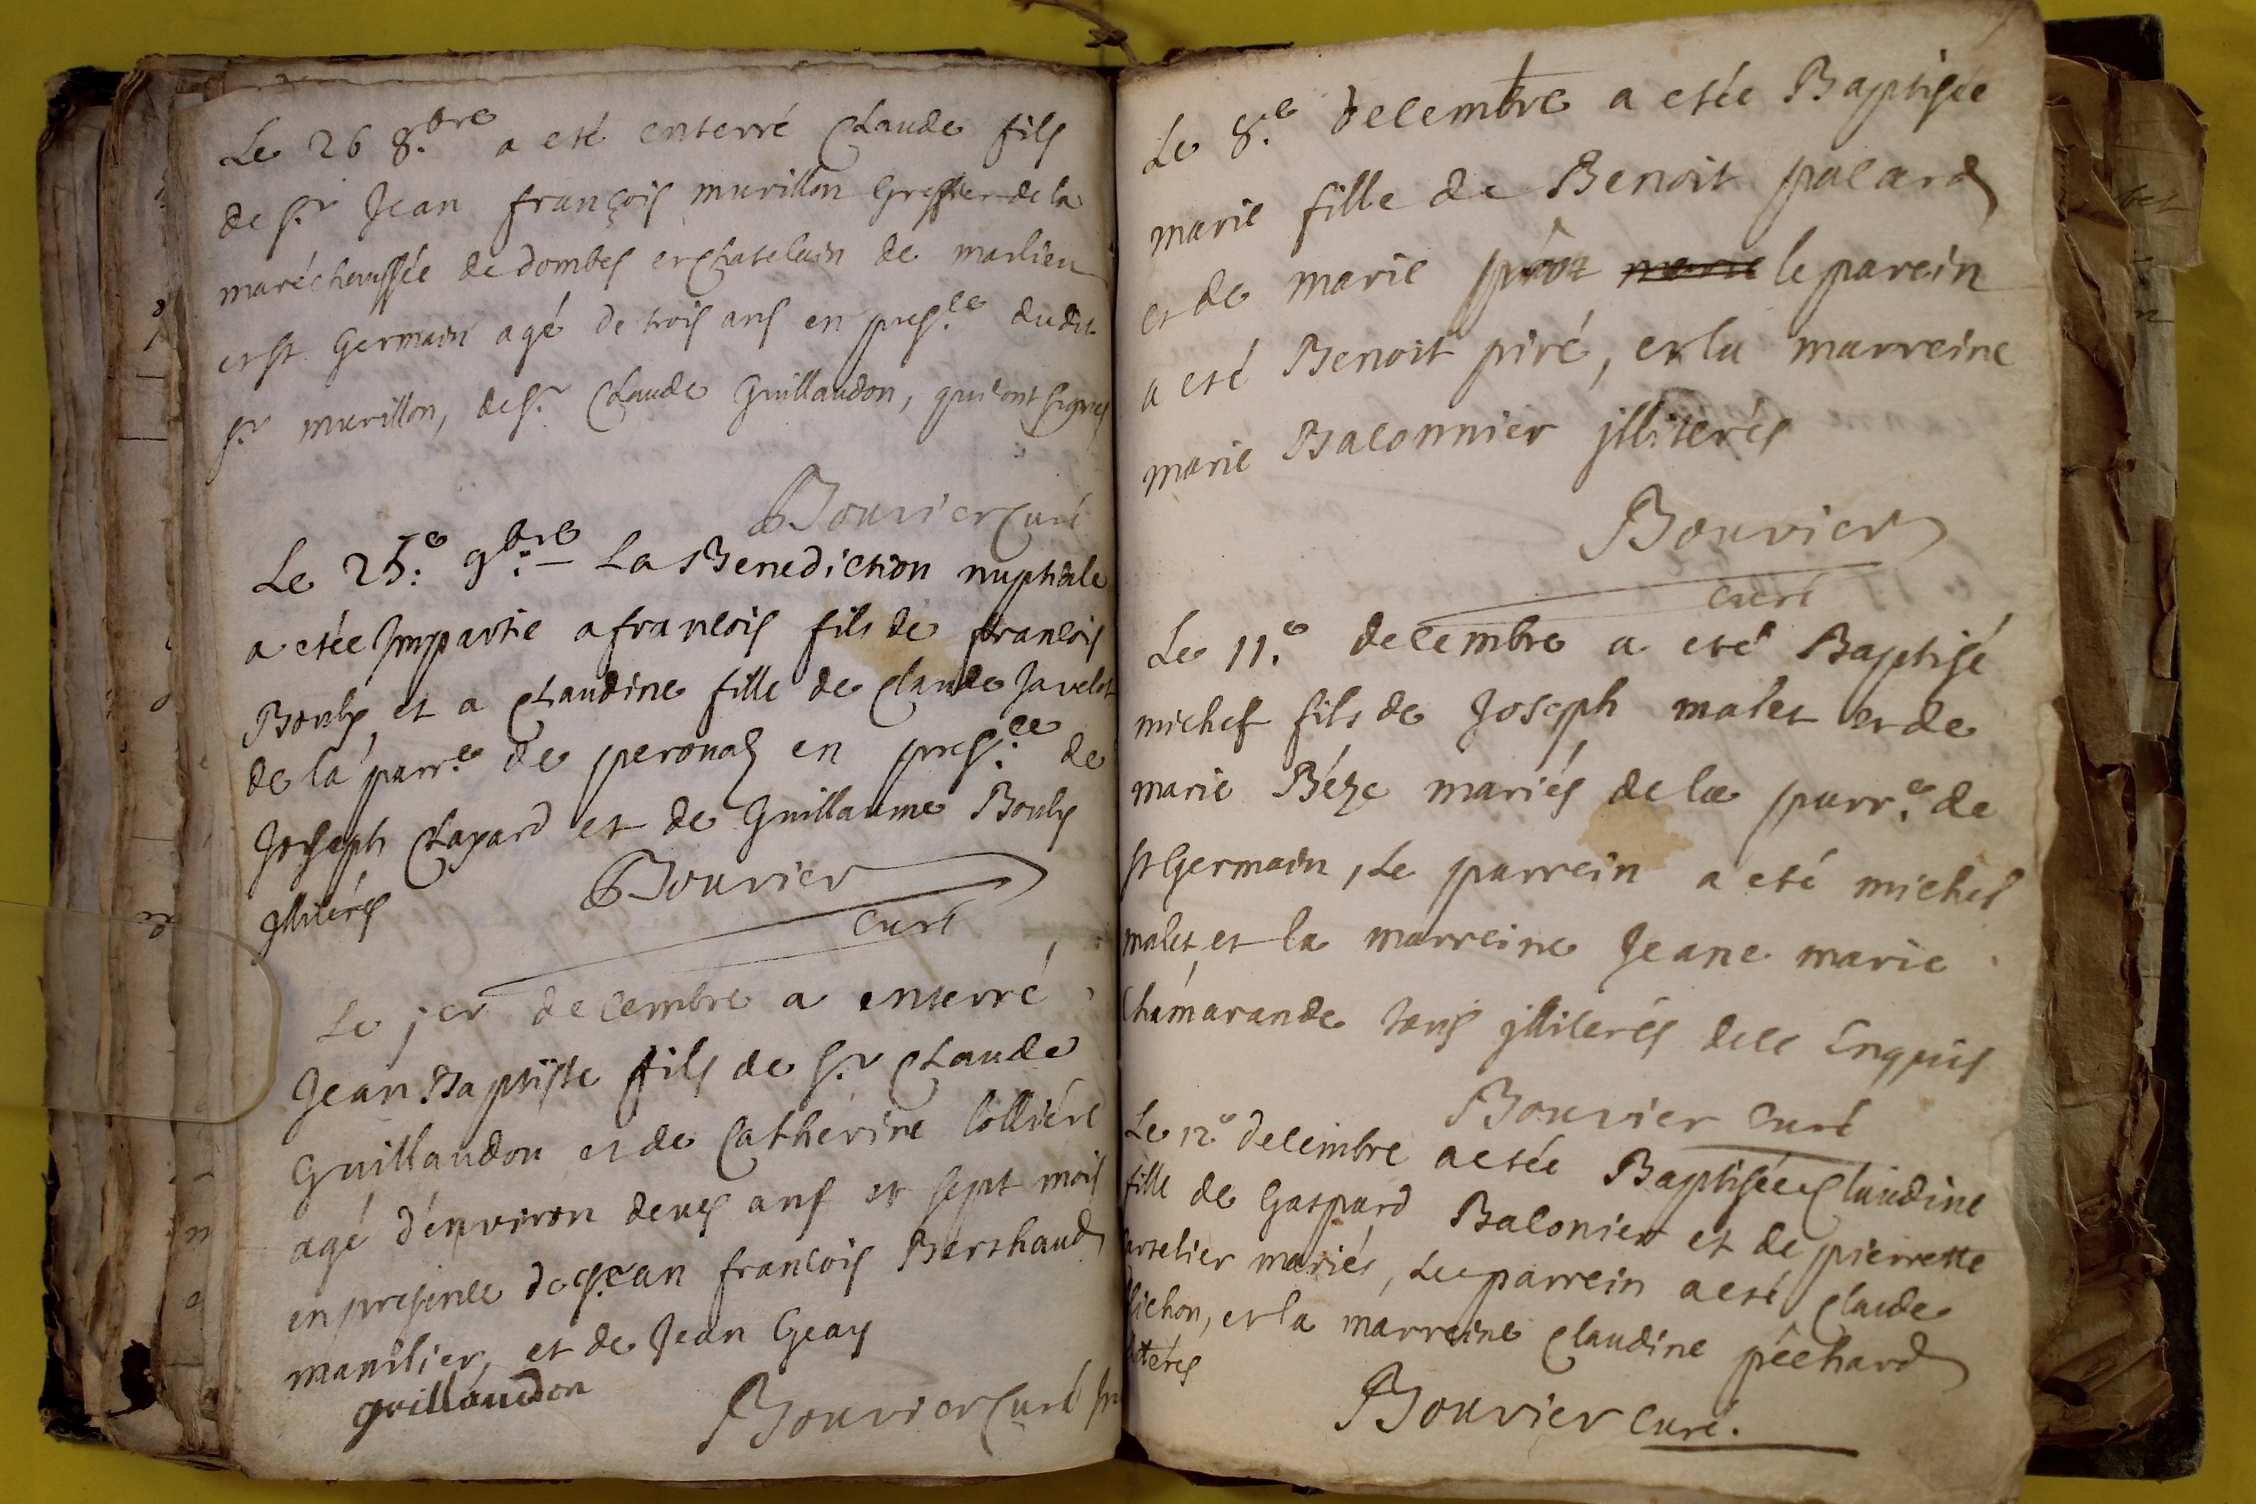 Le 26 8.bre a eté enterré Claude fils
de Sr Jean françois murillon Greffier de la
maréchaussée de dombes et Chatelain de marlieu
et St Germain agé de trois ans en pres.ce dudit
Sr murillon, de Sr Claude Guillaudon, qui ont signés
Bouvier Curé
Le 25.e 9.bre – La Benediction nuptiale
a etée Impartie a francois fils de francois
Bouly, et a Claudine fille de Claude Javelot
de la parr.e de perouas en pres.ce de
Joseph Chapard et de Guillaume Bouly
Illiterés Bouvier
curé
Le 1er decembre a enterré
Jean Baptiste fils de Sr Claude
Guillaudon et de Catherine Collière
agé d'environ deux ans et sept mois
en presence de Jean francois Berthaud
manilier, et de Jean Geay
guillaudon
Bouvier Curé
Le 8.e decembre a etée Baptisée
marie fille de Benoit palard
et de marie marie le parein
a eté Benoit piré, et la marreine
marie Balonnier illiterés
Bouvier
curé
Le 11.e decembre a eté Baptisé
michel fils de Joseph malet et de
marie Béze mariés de la parr.e de
St Germain, Le parrein a eté michel
malet et la marreine Jeane marie
Chamarande tous illiterés de ce Enquis
Bouvier Curé
Le 12.e decembre a etée Baptisée Claudine
fille de Gaspard Balonier et de pierrette
mariés, Le parrein a eté Claude
et la marreine Claudine péchard
Bouvier Curé.